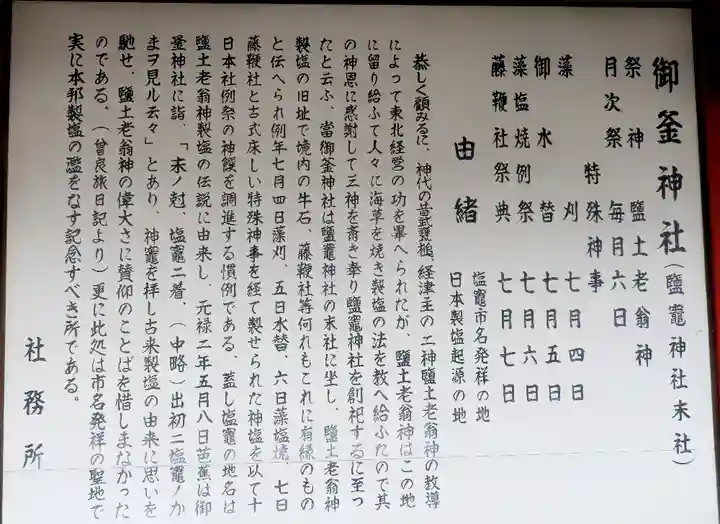 御釜神社(鹽竈神社末社)
祭神 鹽土老翁神
月次祭 毎月六日
特殊神事
藻刈 七月四日
御水替 七月五日
藻塩焼例祭 七月六日
藤鞭社祭典 七月七日
塩竈市名発祥の地
日本製塩起源の地
由緒
恭しく顧みるに、神代の昔武甕槌、経津主の二神鹽土老翁神の教導
によって東北経営の功を畢へられたが、鹽土老翁神はこの地
に留り給ふて人々に海草を焼き製塩の法を教へ給ふたので其
の神恩に感謝して三神を斎き奉り鹽竈神社を創祀するに至つ
たと云ふ、當御釜神社は鹽竈神社の末社に坐し、鹽土老翁神
製塩の旧址で境内の牛石、藤鞭社等何れもこれに有縁のもの
と伝へられ例年七月四日藻刈、五日水替、六日藻塩焼、七日
藤鞭社と古式床しい特殊神事を経て製せられた神塩を以て十
日本社例祭の神饌を調進する慣例である。蓋し塩竈の地名は
鹽土老翁神製塩の伝説に由来し、元禄二年五月八日芭蕉は御
釜神社に詣、「末ノ尅、塩竈ニ着、(中略)出初ニ塩竈ノか
まヲ見ル云々」とあり、神竈を拝し古来製塩の由来に思いを
馳せ、鹽土老翁神の偉大さに賛仰のことばを惜しまなかった
のである。(曾良旅日記より)更に此処は市名発祥の聖地で
実に本邦製塩の濫をなす記念すべき所である。
社務所